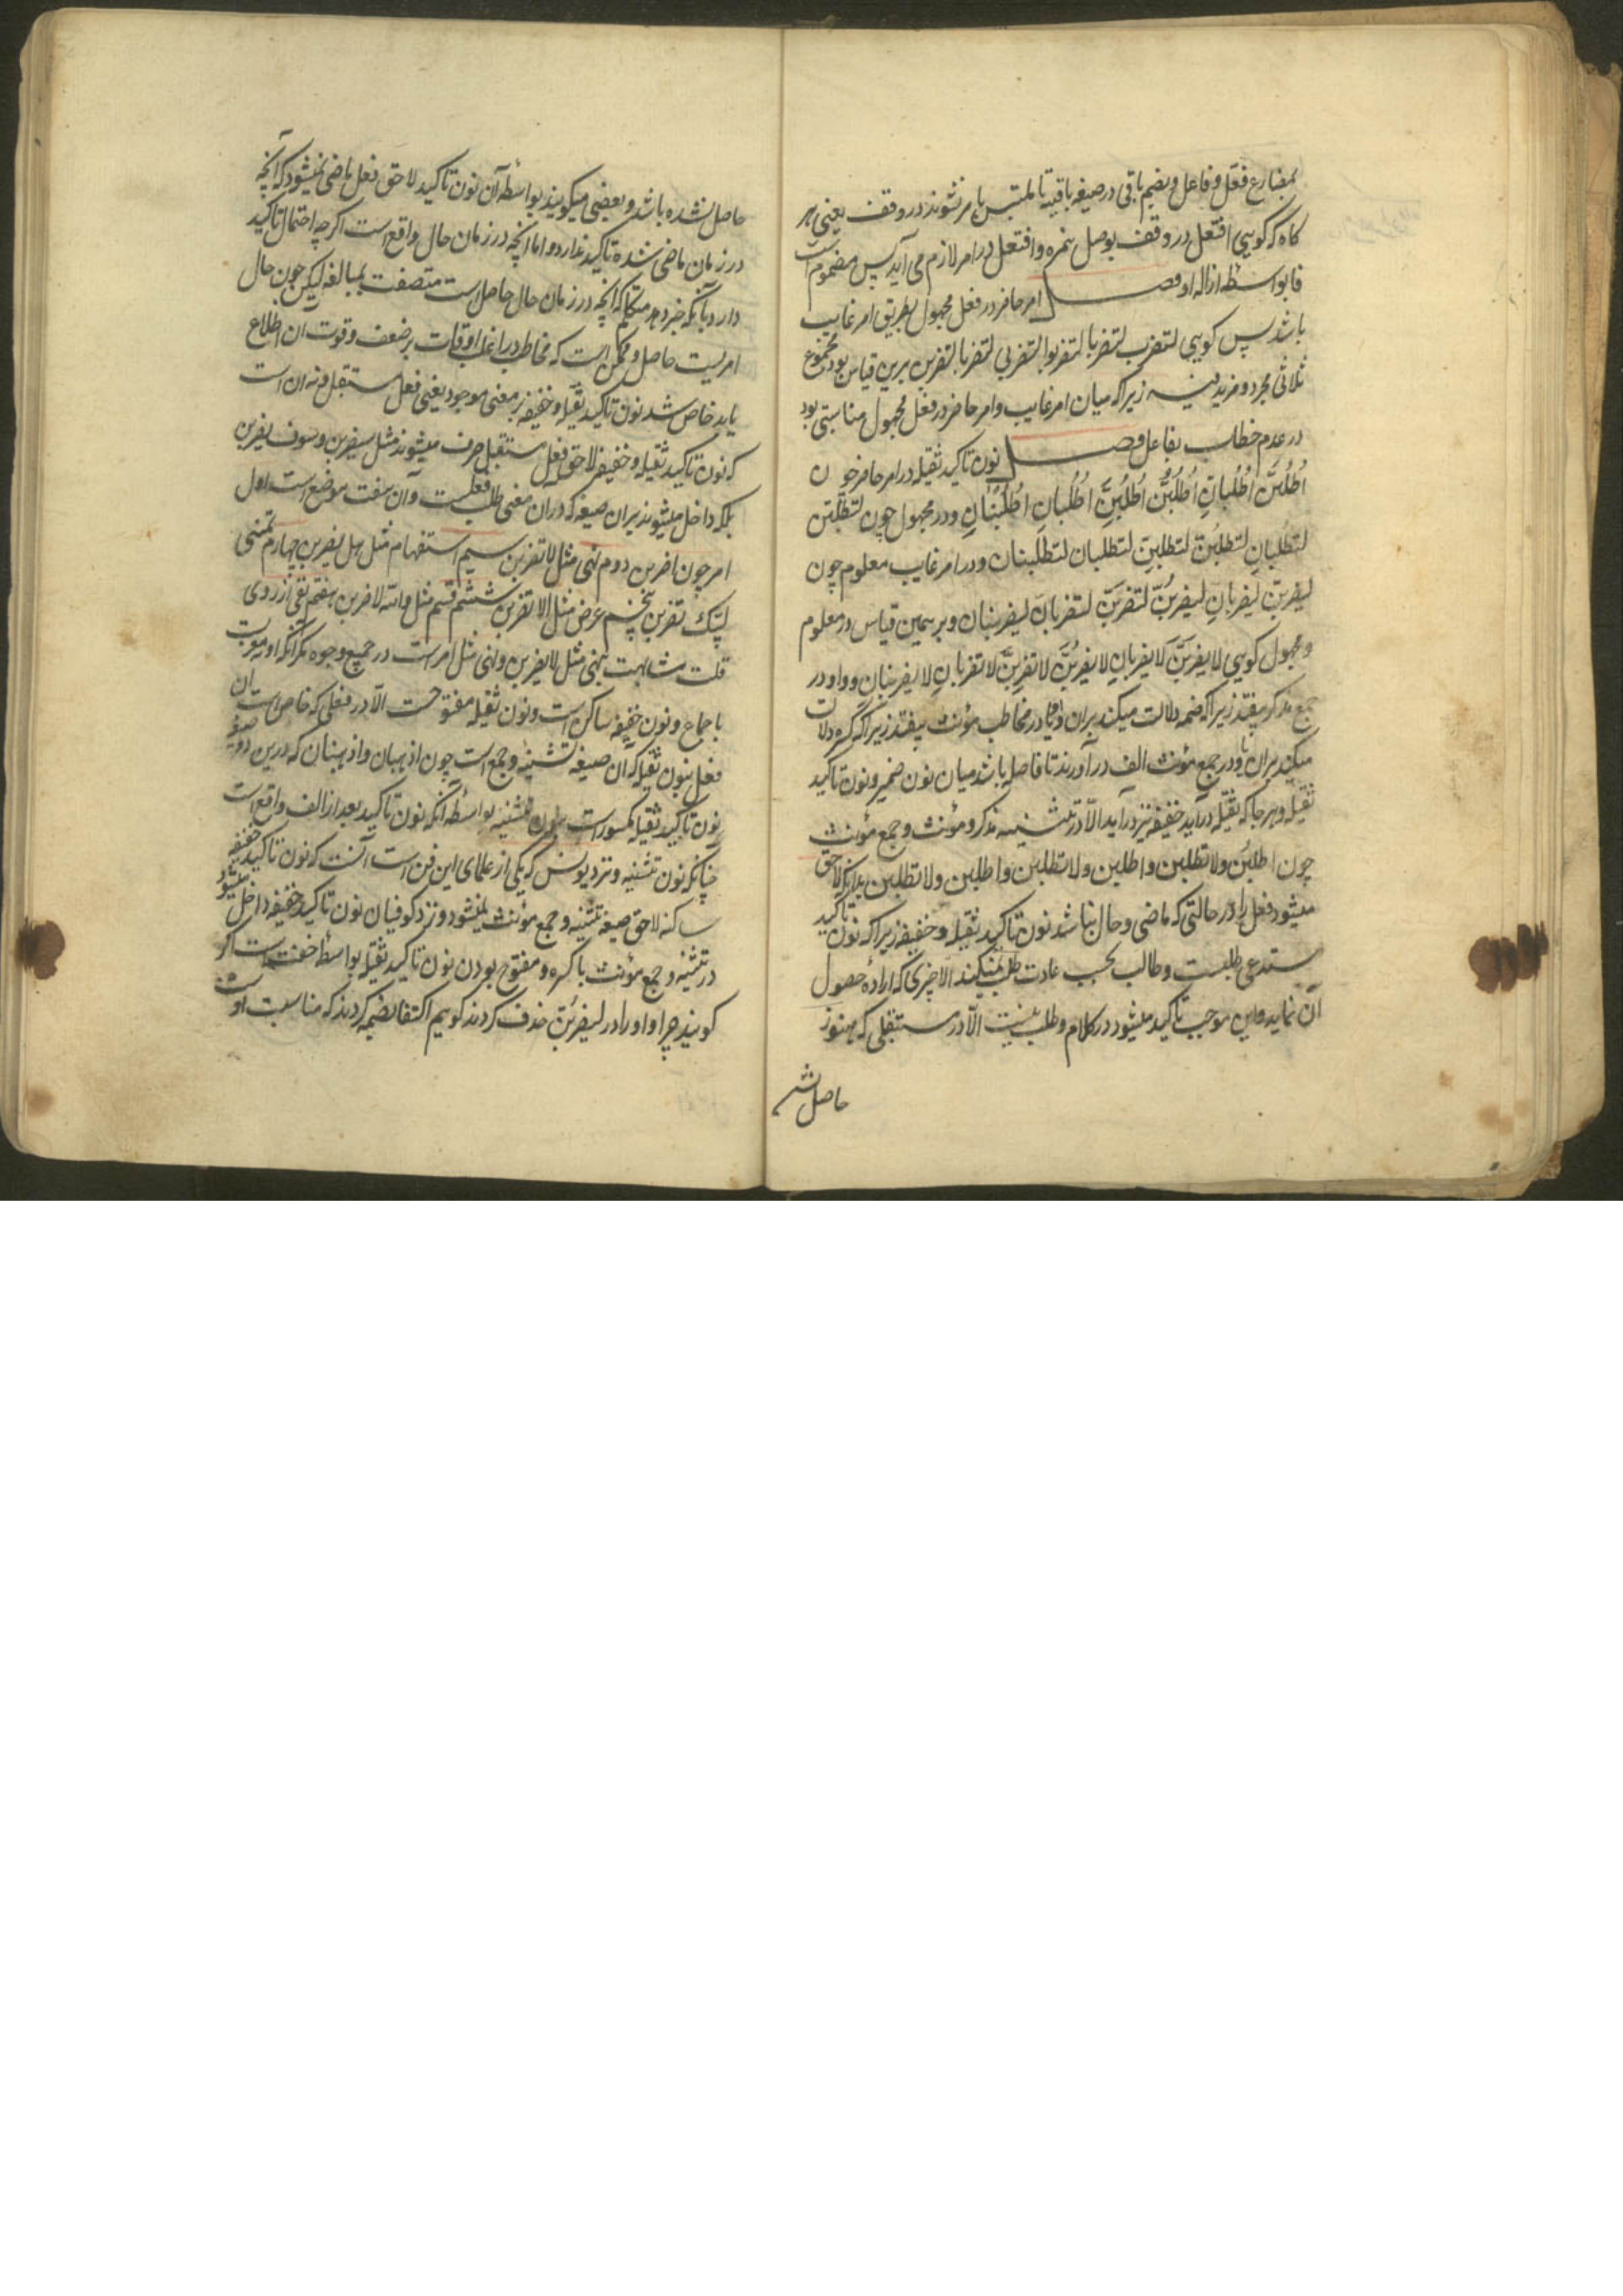 بمضارع فعّل و فاعل و بضم باقی در صیغه باقیه تا ملتبس بامر نشوند در وقف یعنی هر
کاه که کویی افتعل در وقف بوصل همزه وافتعل در امر لازم می آید پس مضموم است
فا بواسطه ازاله او فصل امر حاضر در فعل مجهول بطریق امر غایب
باشد پس کویی لتضرب لتضربا لتضربوا لتضربی لتضربا لتضربن برین قیاس بود مجموع
ثلاثی مجرد و مزید فیه زیرا که میان امر غایب و امر حاضر در فعل مجهول مناسبتی بود
در عدم خطاب بفاعل فصل نون تاکید ثقیله در امر حاضر چون
اُطْلُبَنَّ اُطْلُبانِّ اُطْلُبُنَّ اُطْلُبِنَّ اُطْلُبانِّ اُطْلُبْنانِّ ودر مجهول چون لتطلبن
لتطلبان لتطلبن لتطلبن لتطلبان لتطلبنان ودر امر غایب معلوم چون
لیضربن لیضربان لیضربن لتضربن لتضربان لیضربنان وبر همین قیاس در معلوم
و مجهول کویی لا یضربن لا یضربان لا یضربن لا تضربن لا تضربان لا یضربنان و واو در
جمع مذکر بیفتد زیرا که ضمه دلالت میکند بران و یا در مخاطب مؤنث بیفتد زیرا که کسره دلالت
میکند بران و در جمع مؤنث الف در آورند تا فاصل باشد میان نون ضمیر و نون تاکید
ثقیله و هر جا که ثقیله در آید خفیفه نیز در آید الّا در تثنیه مذکر و مؤنث و جمع مؤنث
چون اطلبن ولا تطلبن واطلبن ولا تطلبن واطلبن ولا تطلبن بدانکه لاحق
میشود فعل را در حالتی که ماضی و حال نباشد نون تاکید ثقیله و خفیفه زیرا که نون تاکید
مستدعی طلبست و طالب بحسب عادت طلب نمیکند الّا چیزی که اراده حصول
آن نماید و این موجب تاکید میشود در کلام و طلب نیست الّا در مستقبلی که هنوز
حاصل نشده
حاصل نشده باشد و بعضی میکویند بواسطه آن نون تاکید لاحق فعل ماضی نمیشود که آنچه
در زمان ماضی شده تاکید ندارد و اما آنچه در زمان حال واقع است اکر چه احتمال تاکید
دارد بآنکه خبر دهد متکلم که آنچه در زمان حال حاصل است متصفت بمبالغه لیکن چون حال
امریست حاصل و ممکن است که مخاطب در اغلب اوقات بر ضعف و قوت آن اطلاع
یابد خاص شد نون تاکید ثقیله و خفیفه بر معنی موجود یعنی فعل مستقبل و نه آن است
که نون تاکید ثقیله و خفیفه لاحق فعل مستقبل صرف میشوند مثل سیضربن و سوف یضربن
بلکه داخل میشوند بران صیغه که دران معنی طلب فعلست و آن هفت موضع است اول
امر چون اضربن دوم نهی مثل لا تضربن سیم استفهام مثل هل یضربن چهارم تمنی
لیتک تضربن پنجم عرض مثل الا تضربن ششم قسم مثل والله لاضربن هفتم نفی از روی
قلت مشابهت بنهی مثل لا یضربن و نهی مثل امر است در جمیع وجوه مکر آنکه او معرب
باجماع و نون خفیفه ساکن است و نون ثقیله مفتوحست الّا در فعلی که خاص است آن
فعل بنون ثقیله که آن صیغه تثنیه و جمع است چون اذهبان واذهبنان که درین دو صیغه
نون تاکید ثقیله مکسور است چون تثنیه بواسطه آنکه نون تاکید بعد از الف واقع است
چنانکه نون تثنیه و نزد یونس که یکی از علمای این فن است آنست که نون تاکید خفیفه
ساکنه لاحق صیغه تثنیه و جمع مؤنث نمیشود و نزد کوفیان نون تاکید خفیفه داخل میشود
در تثنیه و جمع مؤنث با کسره و مفتوح بودن نون تاکید ثقیله بواسطه خفتست اکر
کویند چرا واو را در لیضربن حذف کردند کوییم اکتفا بضمه کردند که مناسبت او